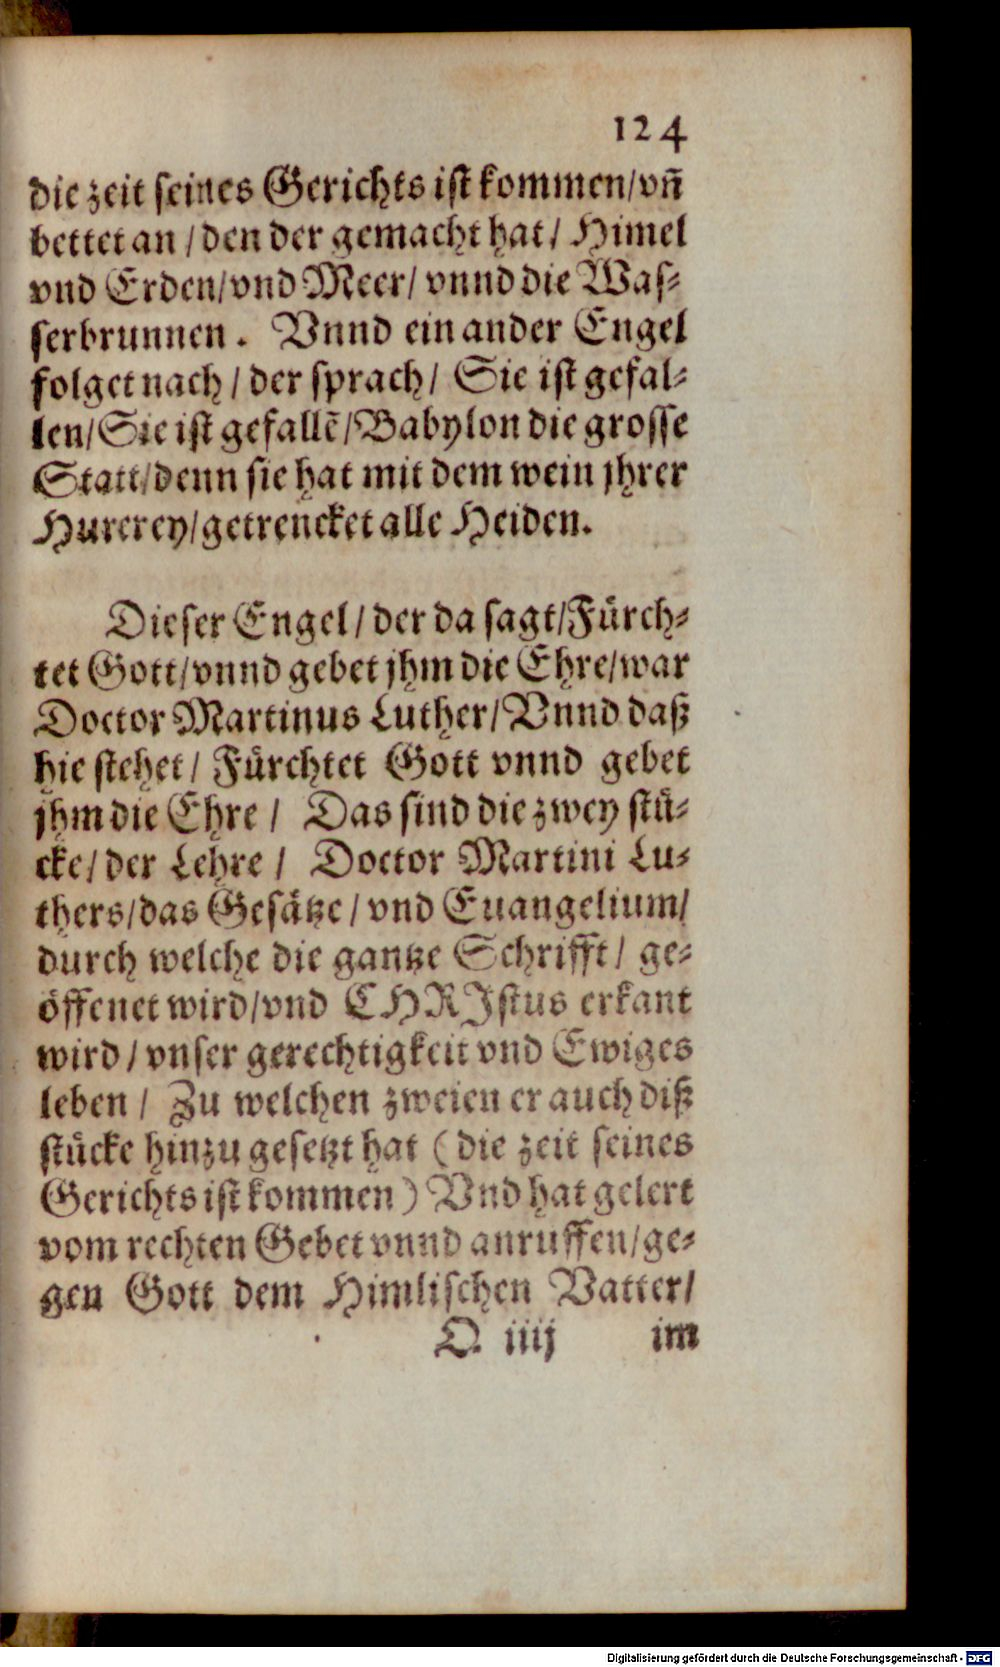 124
die zeit seines Gerichts ist kommen/vñ
bettet an/den der gemacht hat/Himel
vnd Erden/vnd Meer/vnnd die Was-
serbrunnen. Vnnd ein ander Engel
folget nach/der sprach/Sie ist gefal-
len/Sie ist gefallẽ/Babylon die grosse
Statt/denn sie hat mit dem wein jhrer
Hurerey/getrencket alle Heiden.
Dieser Engel/der da sagt/Fürch-
tet Gott/vnnd gebet jhm die Ehre/war
Doctor Martinus Luther/Vnnd daß
hie stehet/Fürchtet Gott vnnd gebet
jhm die Ehre/Das sind die zwey stü-
cke/der Lehre/Doctor Martini Lu-
thers/das Gesätze/vnd Euangelium/
durch welche die gantze Schrifft/ge-
öffenet wird/vnd CHRJstus erkant
wird/vnser gerechtigkeit vnd Ewiges
leben/Zu welchen zweien er auch diß
stücke hinzu gesetzt hat (die zeit seines
Gerichts ist kommen) Vnd hat gelert
vom rechten Gebet vnnd anruffen/ge-
gen Gott dem Himlischen Vatter/
Q iiij im
Digitalisierung gefördert durch die Deutsche Forschungsgemeinschaft - DFG